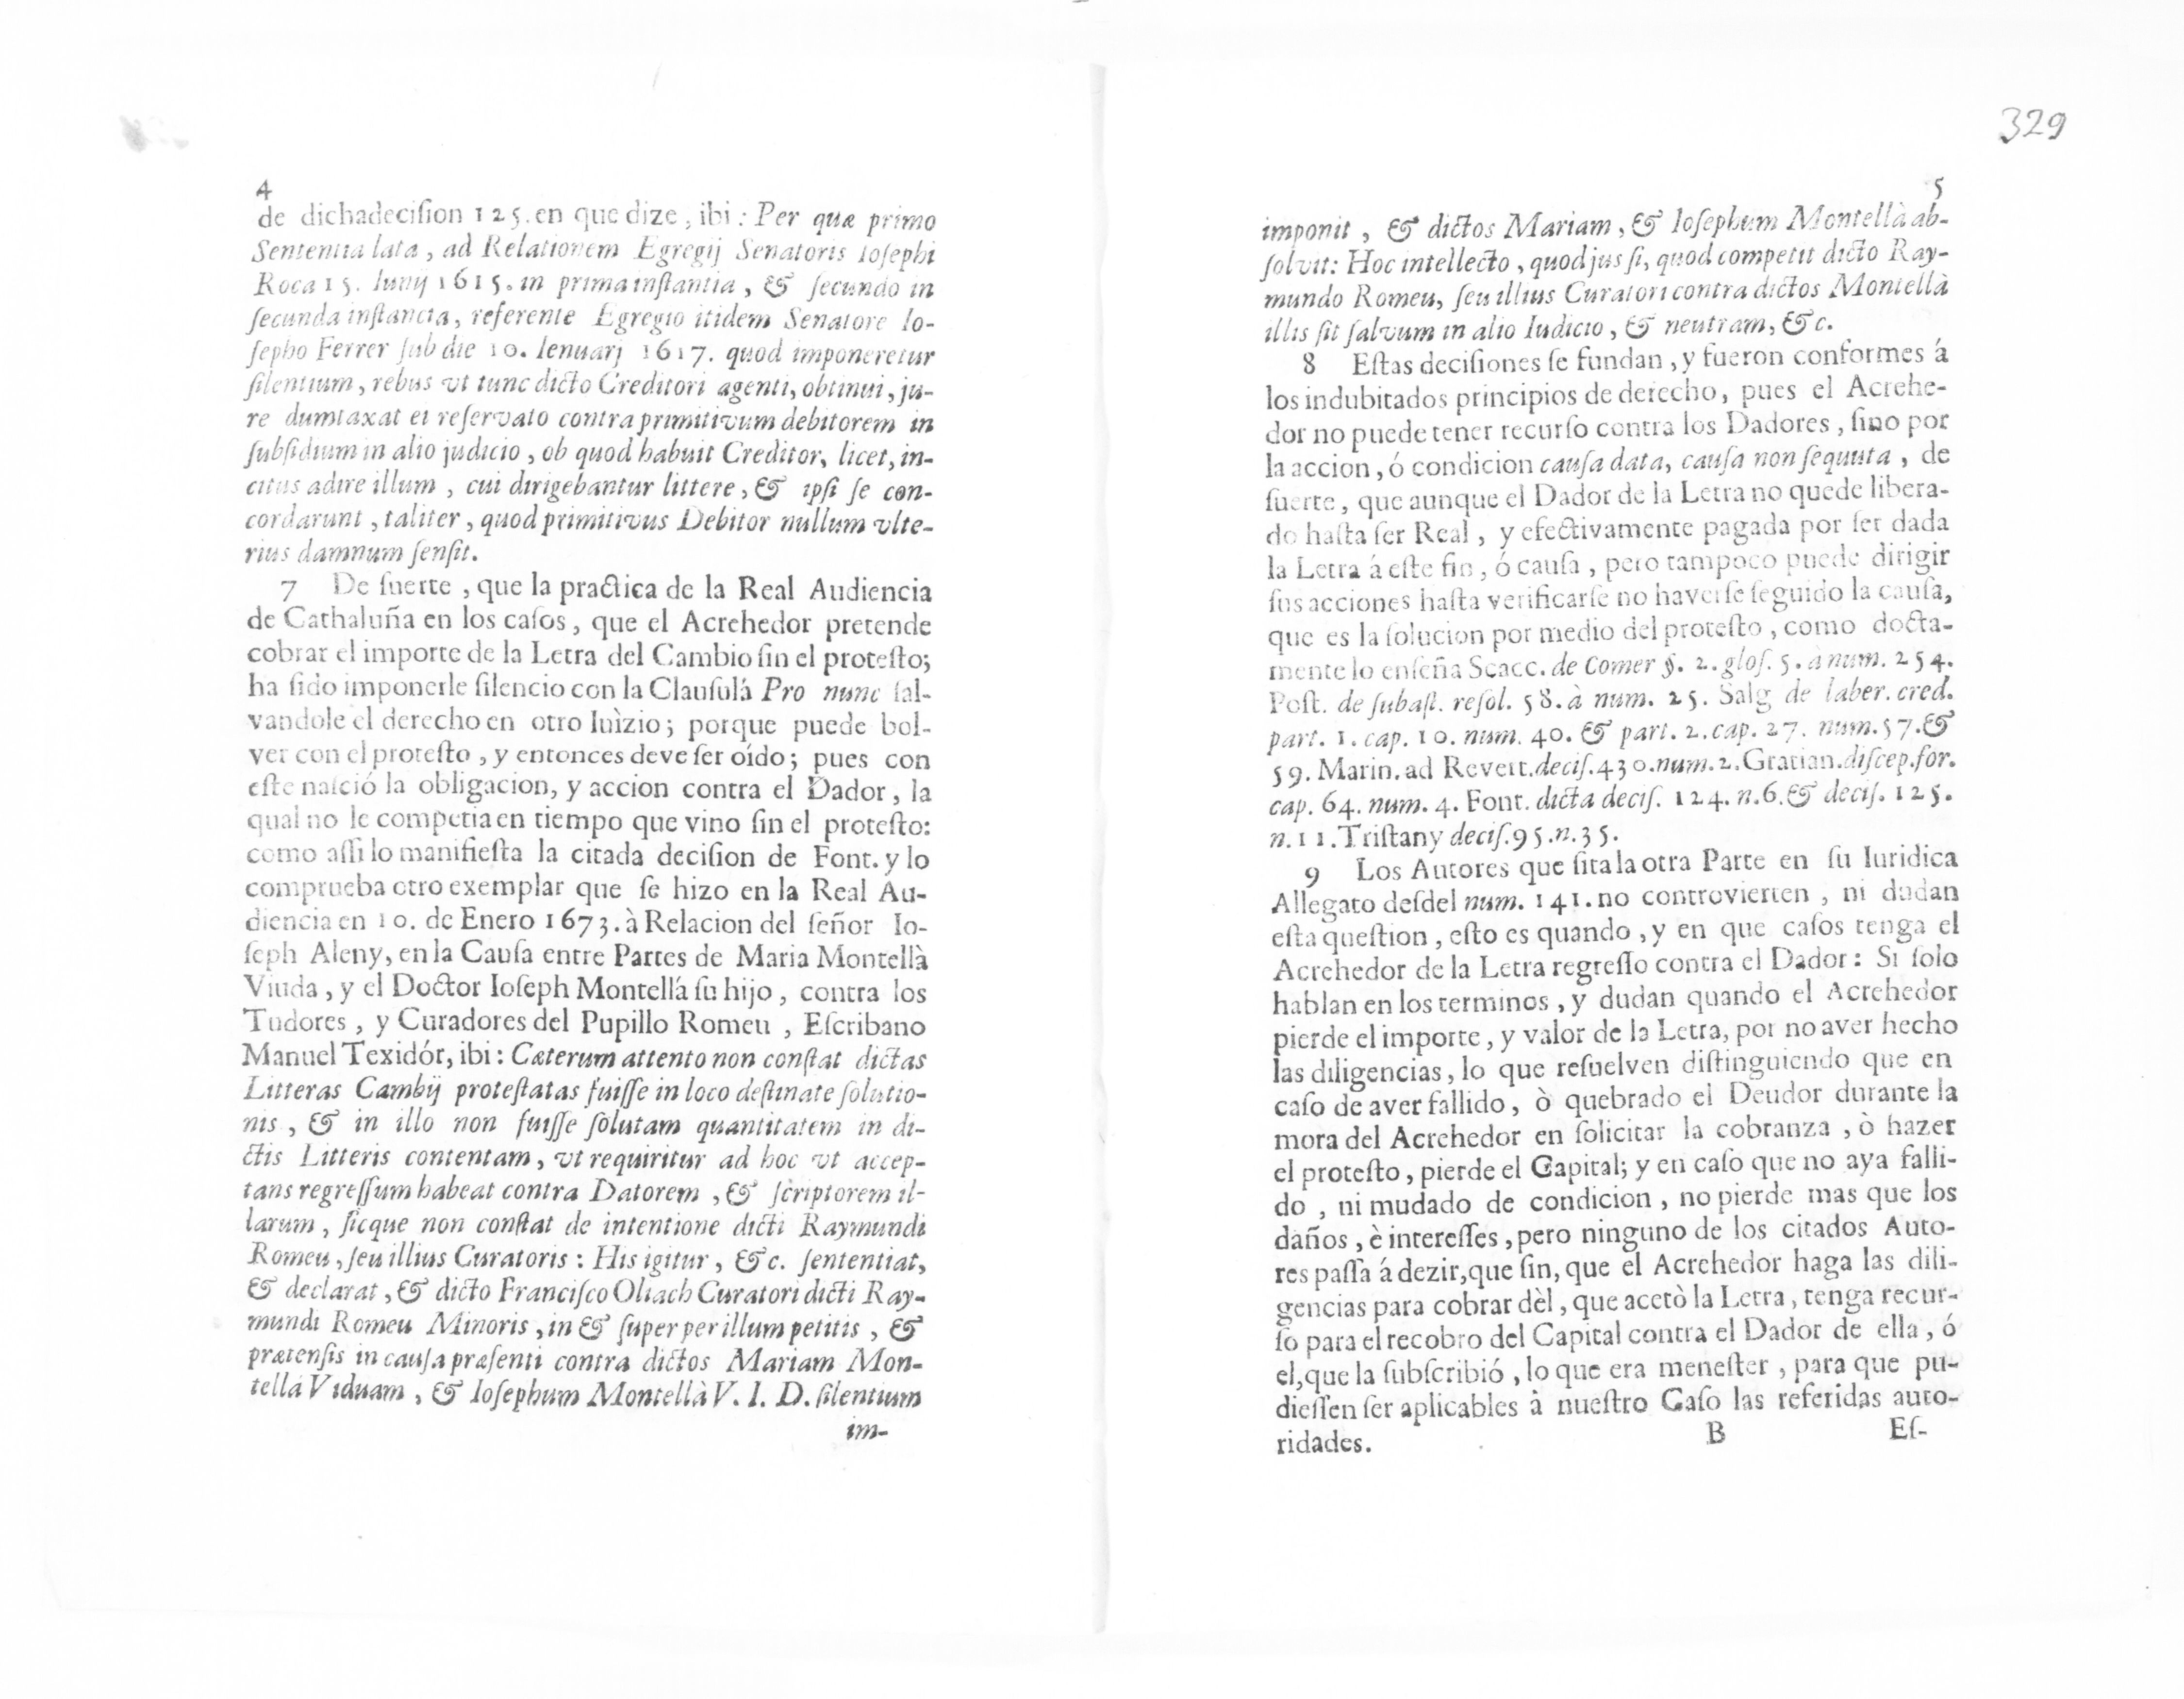 4
de dichadecisiõn 125. en que dize, ibi: Per quæ primo
Sententia lata, ad Relationem Egregij Senatoris Iosephi
Roca 15. Iunij 1615. in prima instantia, & secundo in
secunda instancia, referente Egregio itidem Senatore Io-
sepho Ferrer sub die 10. Ienuarj 1617. quod imponeretur
silentium, rebus vt tunc dicto Creditori agenti, obtinui, ju-
re dumtaxat ei reservato contra primitivum debitorem in
subsidium in alio judicio, ob quod habuit Creditor, licet, in-
citus adire illum, cui dirigebantur littere, & ipsi se con-
cordarunt, taliter, quod primitivus Debitor nullum vlte-
rius damnum sensit.
7 De suerte, que la practica de la Real Audiencia
de Cathaluña en los casos, que el Acrehedor pretende
cobrar el importe de la Letra del Cambio sin el protesto;
ha sido imponerle silencio con la Clausulá Pro nunc sal-
vandole el derecho en otro Iuìzio; porque puede bol-
ver con el protesto, y entonces deve ser oído; pues con
este naſció la obligacion, y accion contra el Dador, la
qual no le competia en tiempo que vino sin el protesto:
como assi lo manifiesta la citada decision de Font. y lo
comprueba otro exemplar que se hizo en la Real Au-
diencia en 10. de Enero 1673. à Relacion del señor Io-
seph Aleny, en la Causa entre Partes de Maria Montellà
Viuda, y el Doctor Ioseph Montellá su hijo, contra los
Tudores, y Curadores del Pupillo Romeu, Escribano
Manuel Texidór, ibi: Cæterum attento non constat dictas
Litteras Cambij protestatas fuisse in loco destinate solutio-
nis, & in illo non fuisse solutam quantitatem in di-
ctis Litteris contentam, vt requiritur ad hoc vt accep-
tans regressum habeat contra Datorem, & scriptorem il-
larum, sicque non constat de intentione dicti Raymundi
Romeu, seu illius Curatoris: His igitur, &c. sententiat,
& declarat, & dicto Francisco Oliach Curatori dicti Ray-
mundi Romeu Minoris, in & super per illum petitis, &
prætensis in causa præsenti contra dictos Mariam Mon-
tellà Viduam, & Iosephum Montellà V. I. D. silentium
im-
329
5
imponit, & dictos Mariam, & Iosephum Montellà ab-
solvit: Hoc intellecto, quod jus si, quod competit dicto Ray-
mundo Romeu, seu illius Curatori contra dictos Montellà
illis sit salvum in alio Iudicio, & neutram, &c.
8 Estas decisiones se fundan, y fueron conformes á
los indubitados principios de derecho, pues el Acrehe-
dor no puede tener recurso contra los Dadores, sino por
la accion, ó condicion causa data, causa non sequuta, de
suerte, que aunque el Dador de la Letra no quede libera-
do hasta ser Real, y efectivamente pagada por ser dada
la Letra á este fin, ó causa, pero tampoco puede dirigir
sus acciones hasta verificarse no haverse seguido la causa,
que es la solucion por medio del protesto, como docta-
mente lo enseña Scacc. de Comer §. 2. glos. 5. à num. 254.
Post. de subast. resol. 58. à num. 25. Salg de laber. cred.
part. 1. cap. 10. num. 40. & part. 2. cap. 27. num. 57. &
59. Marin. ad Revert. decis. 430. num. 2. Gratian. discep. for.
cap. 64. num. 4. Font. dicta decis. 124. n. 6. & decis. 125.
n. 11. Tristany decis. 95. n. 35.
9 Los Autores que sita la otra Parte en su Iuridica
Allegato desdel num. 141. no controvierten, ni dudan
esta question, esto es quando, y en que casos tenga el
Acrehedor de la Letra regresso contra el Dador: Si solo
hablan en los terminos, y dudan quando el Acrehedor
pierde el importe, y valor de la Letra, por no aver hecho
las diligencias, lo que resuelven distinguiendo que en
caso de aver fallido, ò quebrado el Deudor durante la
mora del Acrehedor en solicitar la cobranza, ò hazer
el protesto, pierde el Capital; y en caso que no aya falli-
do, ni mudado de condicion, no pierde mas que los
daños, è interesses, pero ninguno de los citados Auto-
res passa á dezir, que sin, que el Acrehedor haga las dili-
gencias para cobrar dèl, que acetò la Letra, tenga recur-
so para el recobro del Capital contra el Dador de ella, ó
el, que la subscribió, lo que era menester, para que pu-
diessen ser aplicables à nuestro Caso las referidas auto-
ridades.
B Es-